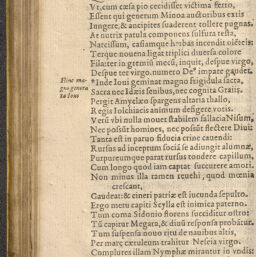 Vt, cum cæsa pio cecidisset victima ferro,
Essent qui generum Minoa auctoribus extis
Iungere, & ancipites suaderent tollere pugnas.
At nutrix patula componens sulfura testa,
Narcissum, casiamque herbas incendit olentes:
Terque nouena ligat triplici diuersa colore
Fila: ter in gremiũ mecũ, inquit, despue virgo,
Despue ter virgo. numero Deº impare gaudet.
Hinc magno generata Ioui
*Inde Ioui geminat magno frigidula sacra,
Sacra nec Idæis senibus, nec cognita Graiis.
Pergit Amyclæo spargens altaria thallo,
Regis Iolchiacis animum defigere votis.
Verũ vbi nulla mouet stabilem fallacia Nisum,
Nec possũt homines, nec possũt flectere Diui:
Tanta est in paruo fiducia crine cauendi:
Rursus ad inceptum sociã se adiungit alumnæ,
Purpureumque parat rursus tondere capillum,
Cum longo quod iam captat succurrere amori.
Non minus illa tamen
quod mœnia
crescant,
Gaudeat: & cineri patriæ est iucunda sepulto.
Ergo metu capiti Scylla est inimica paterno.
Tum coma Sidonio florens succiditur ostro:
Tũ capitur Megara, & diuũ responsa probãtur.
Tum suspensa nouo ritu de nauibus altis,
Per mare cæruleum trahitur Neseia virgo.
Complures illam Nymphæ mirantur in vndis: